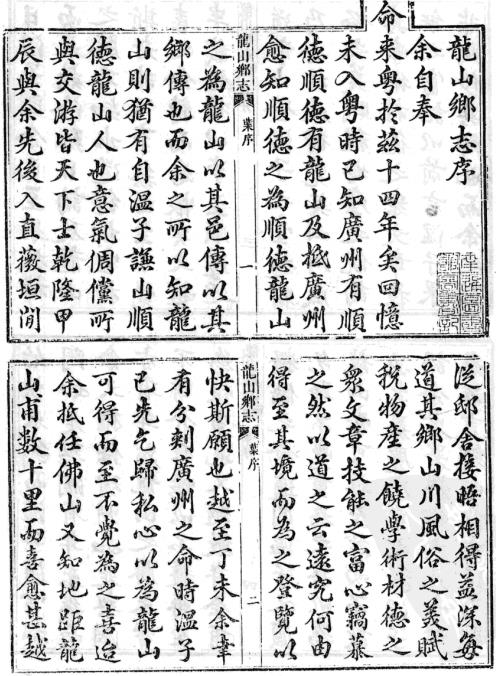 龍山鄉志序
余自奉
命来粤於茲十四年矣回憶
未入粤時已知廣州有順
德順德有龍山及抵廣州
愈知順德之為順德龍山
龍山鄉志 葉序 一
之為龍山以其邑傳以其
鄉傳也而余之所以知龍
山則猶有自溫子謙山順
德龍山人也意氣倜儻所
與交游皆天下士乾隆甲
辰與余先後入直薇垣閒
從邸舍接晤相得益深每
道其鄉山川風俗之美賦
稅物產之饒學術材德之
衆文章技能之富心竊慕
之然以道之云遠究何由
得至其境而為之登覽以
龍山鄉志 葉序 二
快斯願也越至丁未余幸
有分刺廣州之命時溫子
已先乞歸私心以為龍山
可得而至不覺為之喜迨
余抵任佛山又知地距龍
山甫數十里而喜愈甚越